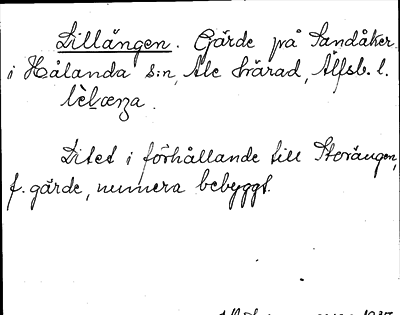 Lillängen. Gärde på Sandåker
i Hålanda s:n, Ale härad, Älfsb. l.
lìl̀æŋa.
Litet i förhållande till Storängen,
f. gärde, numera bebyggt.